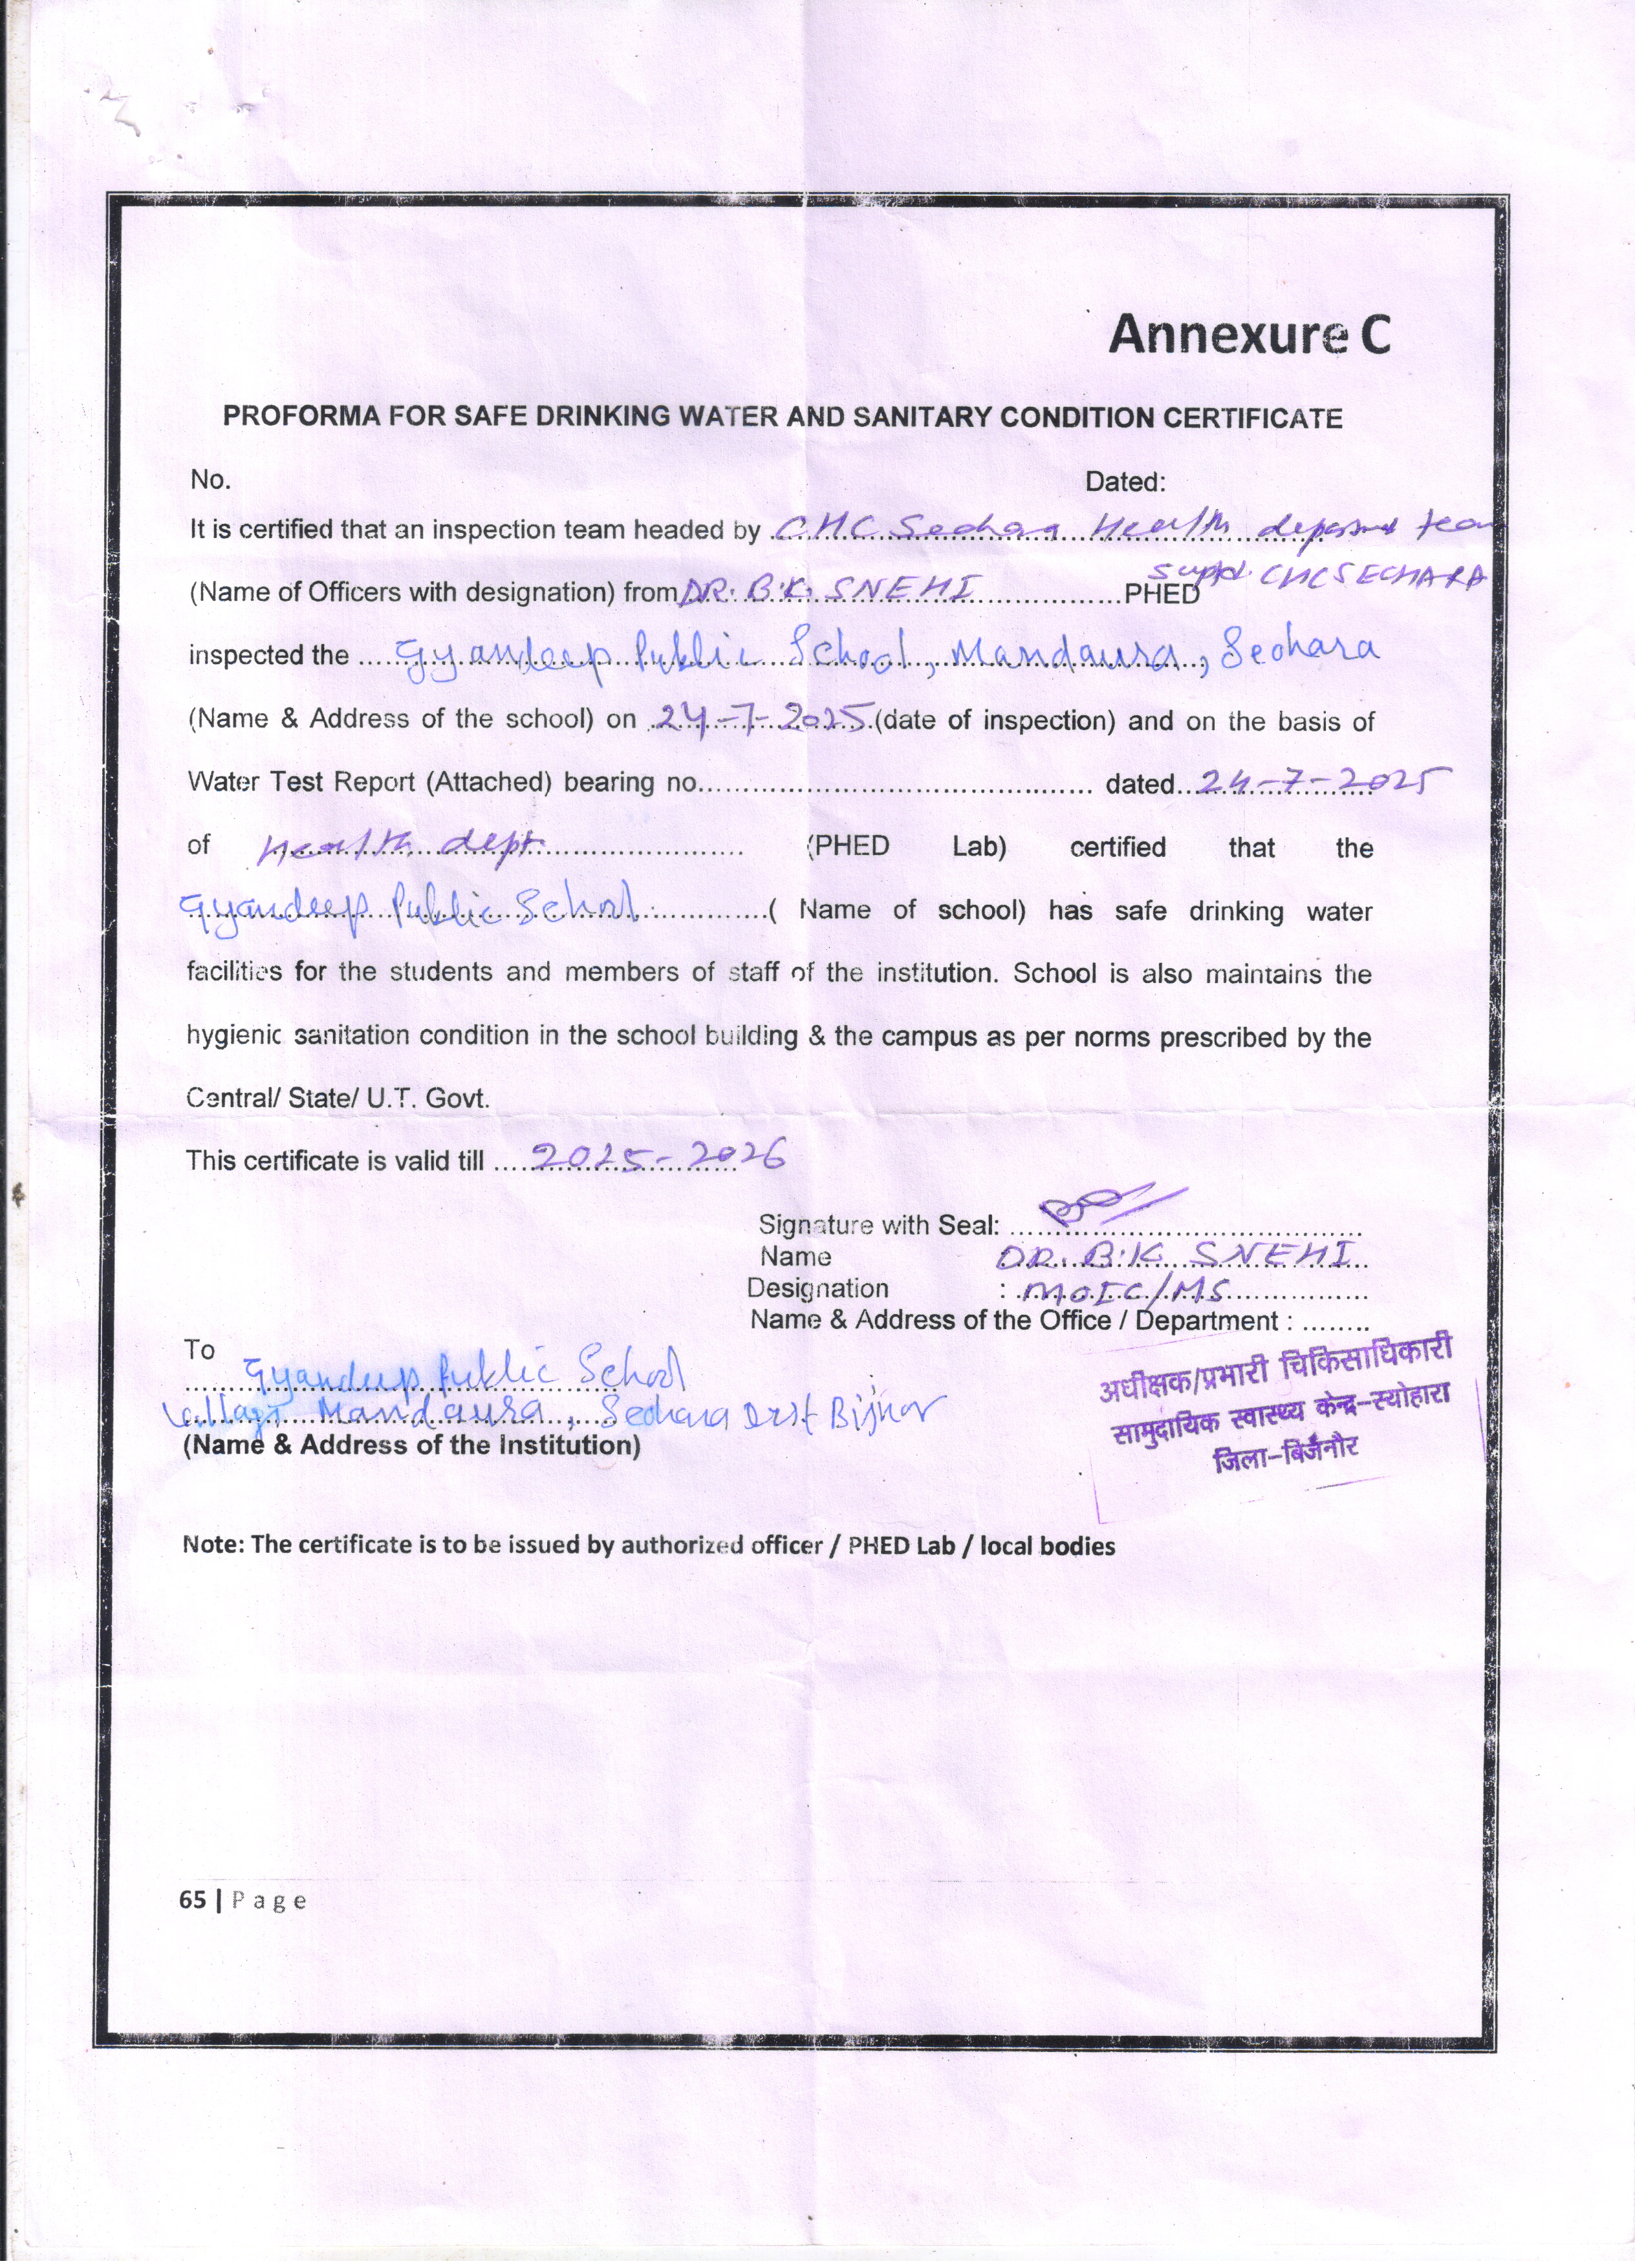 Annexure C
PROFORMA FOR SAFE DRINKING WATER AND SANITARY CONDITION CERTIFICATE
No. Dated:
It is certified that an inspection team headed by CHC Seohara Health team
(Name of Officers with designation) from DR. B.K. SNEHI PHED Supdt. CHC SEOHARA
inspected the Gyandeep Public School, Mandaura, Seohara
(Name & Address of the school) on 24-7-2025 (date of inspection) and on the basis of
Water Test Report (Attached) bearing no. dated 24-7-2025
of Health dept (PHED Lab) certified that the
Gyandeep Public School ( Name of school) has safe drinking water
facilities for the students and members of staff of the institution. School is also maintains the
hygienic sanitation condition in the school building & the campus as per norms prescribed by the
Central/ State/ U.T. Govt.
This certificate is valid till 2025-2026
Signature with Seal:
Name DR. B.K. SNEHI
Designation : MOIC/MS
Name & Address of the Office / Department :
To
Gyandeep Public School
Village Mandaura, Seohara Dist Bijnor
(Name & Address of the Institution)
अधीक्षक/प्रभारी चिकिसाधिकारी
सामुदायिक स्वास्थ्य केन्द्र-स्योहारा
जिला-बिजनौर
Note: The certificate is to be issued by authorized officer / PHED Lab / local bodies
65 | Page